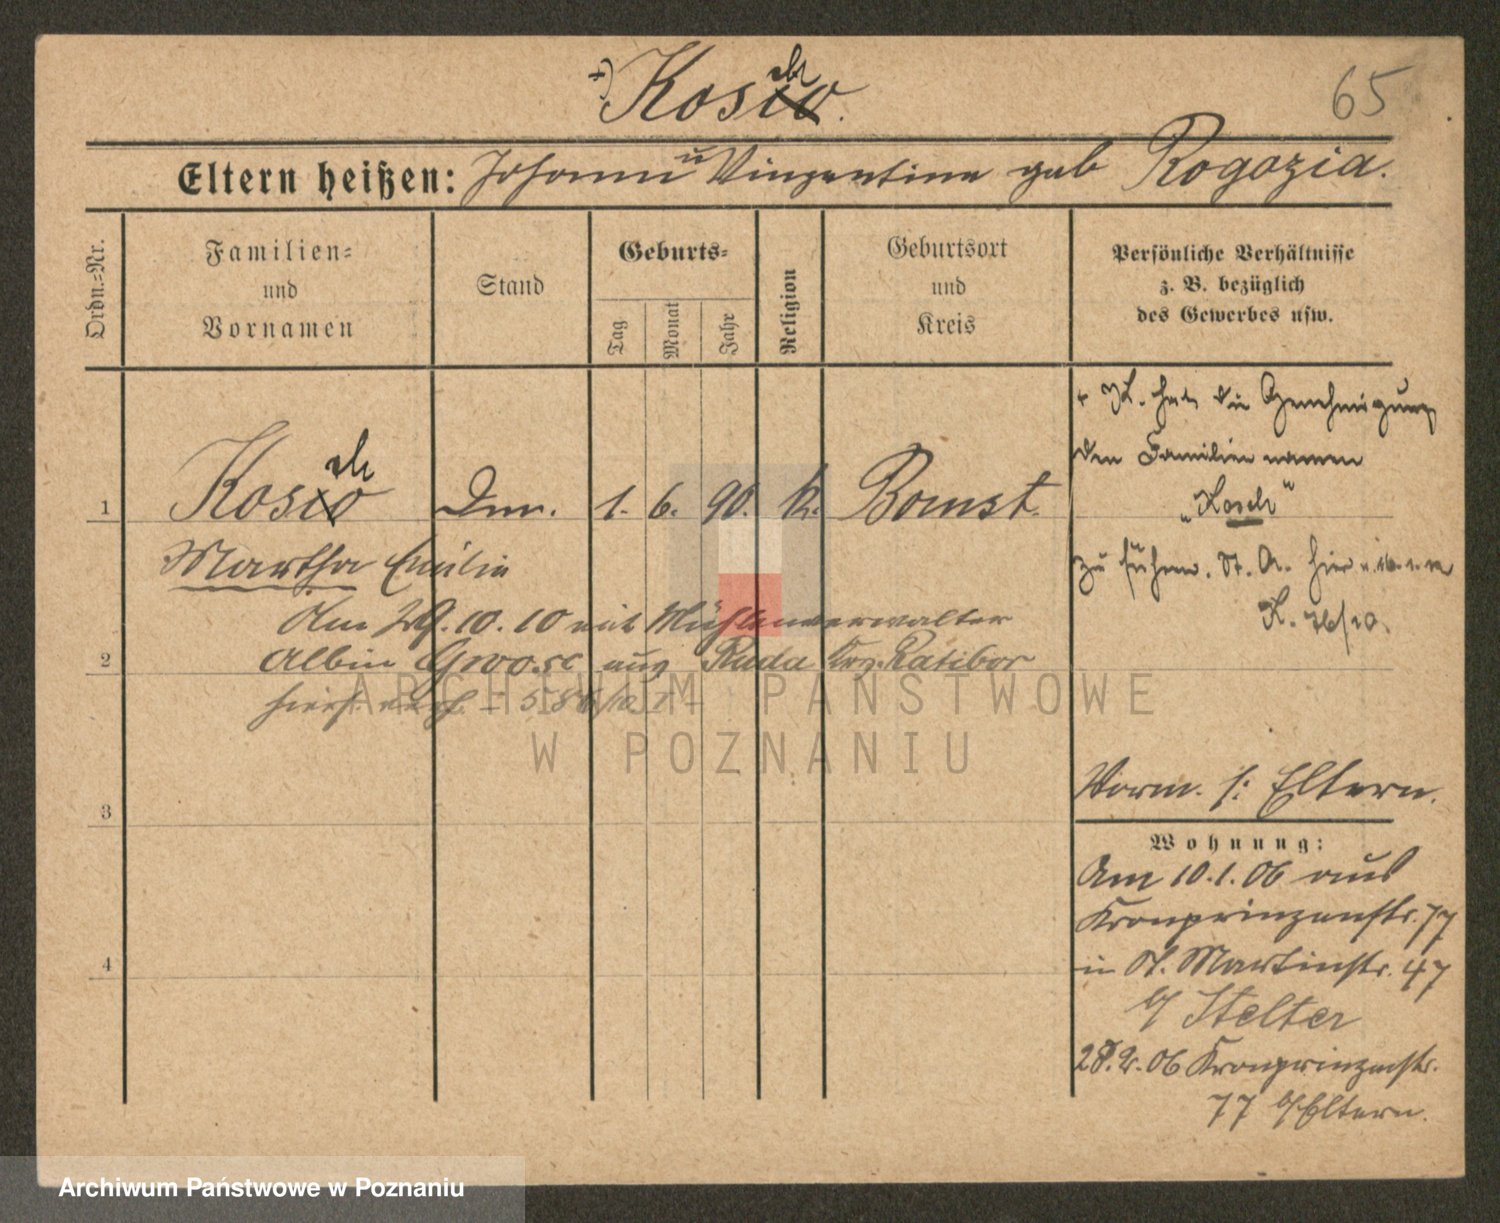 +) Kosio ch.
65
Eltern heißen: Johann u Vinzentine geb Rogozia.
Ordn.=Nr.
Familien=
und
Vornamen
Stand
Geburts=
Tag
Monat
Jahr
Religion
Geburtsort
und
Kreis
Persönliche Verhältnisse
z. B. bezüglich
des Gewerbes usw.
1
Kosio ch
1. 6. 90. k. Bomst.
Martha Emilie
Am 29.10.10 mit Mühlenverwalter
2
Albin aus Ruda Krz. Ratibor
hier
3
4
+ hat die Genehmigung
den Familiennamen
„Kosch“
zu führen. St. A. hier
K. 76/20.
Vorm. s: Eltern.
Wohnung:
Am 10.1.06 aus
Kronprinzenstr. 77
in St. Martinstr. 47
b/ Stelter
28.2.06 Kronprinzenstr.
77 b/Eltern.
ARCHIWUM PAŃSTWOWE
W POZNANIU
Archiwum Państwowe w Poznaniu